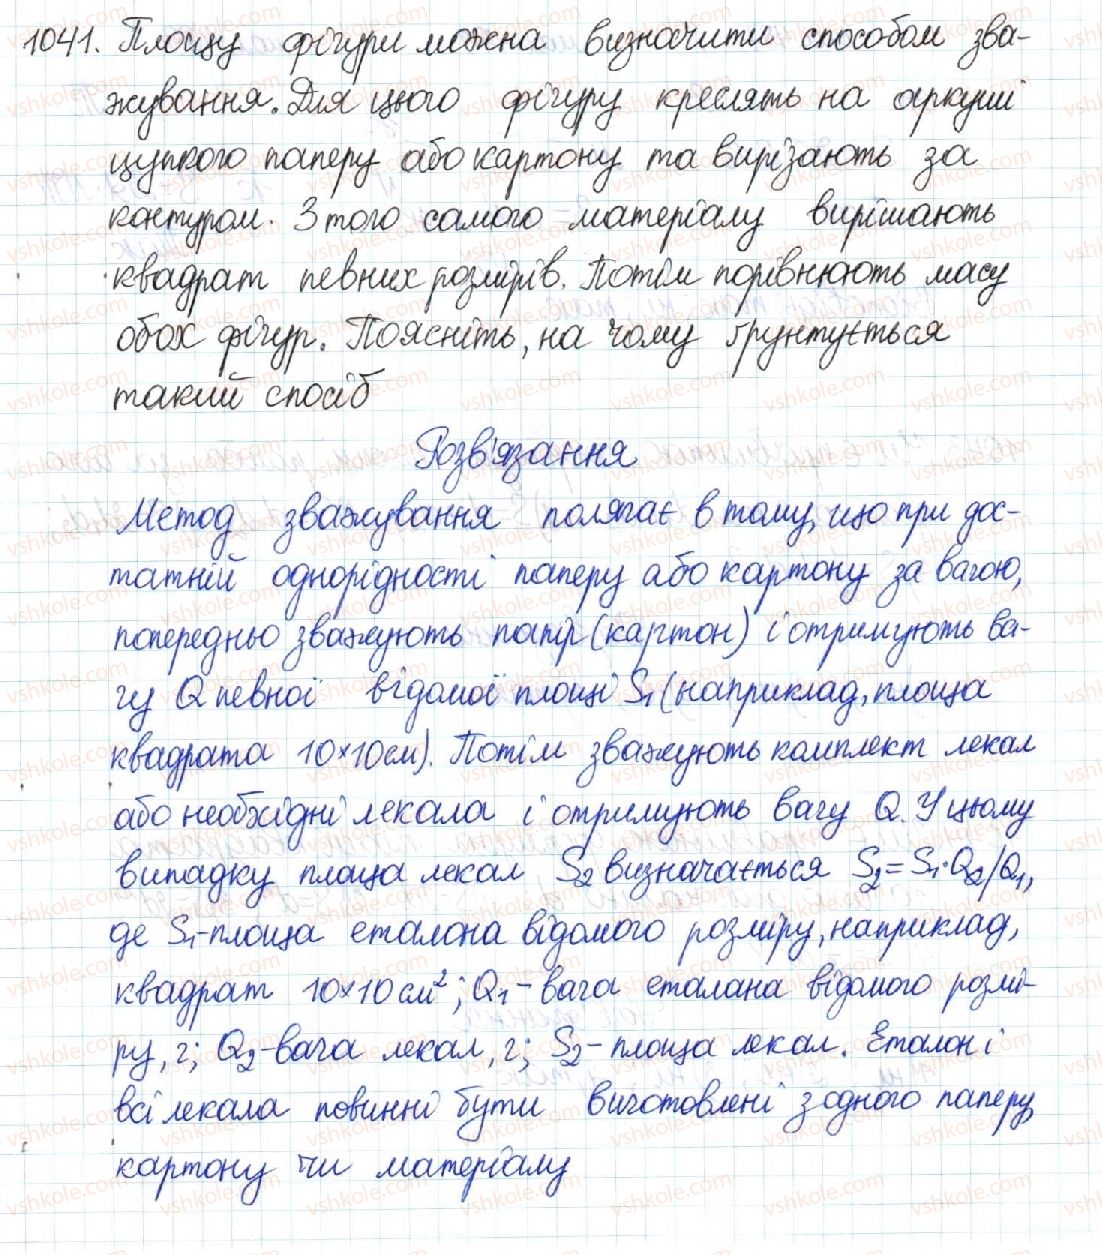 1041. Площу фігури можна визначити способом зва-
жування. Для цього фігуру креслять на аркуші
цупкого паперу або картону та вирізають за
контуром. З того самого матеріалу вирішають
квадрат певних розмірів. Потім порівнюють масу
обох фігур. Поясніть, на чому ґрунтується
такий спосіб
Розв'язання
Метод зважування полягає в тому, що при дос-
татній однорідності паперу або картону за вагою,
попередньо зважують папір (картон) і отримують ва-
гу Q певної відомої площі S₁ (наприклад, площа
квадрата 10×10см). Потім зважують комплект лекал
або необхідні лекала і отримують вагу Q. У цьому
випадку площа лекал S₂ визначається S₂=S₁·Q₂/Q₁,
де S₁-площа еталона відомого розміру, наприклад,
квадрат 10×10см²; Q₁-вага еталана відомого розмі-
ру, г; Q₂-вага лекал, г; S₂-площа лекал. Еталон і
всі лекала повинні бути виготовлені з одного паперу
картону чи матеріалу